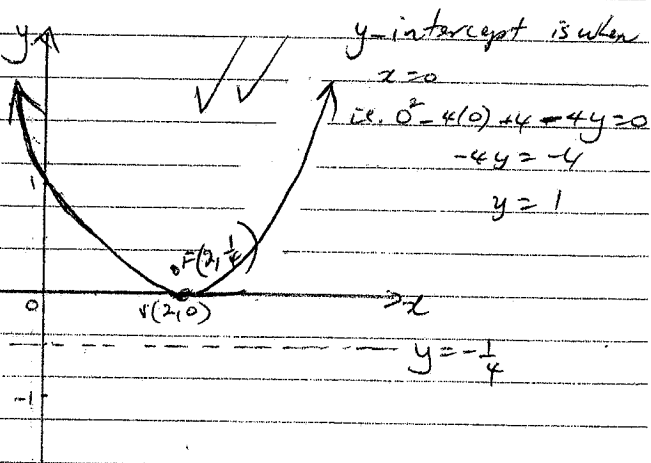 y
y-intercept is when
x=0
i.e. 0² - 4(0) + 4 - 4y = 0
-4y = -4
y = 1
1
F(2, 1/4)
0
V(2,0)
x
y = -1/4
-1